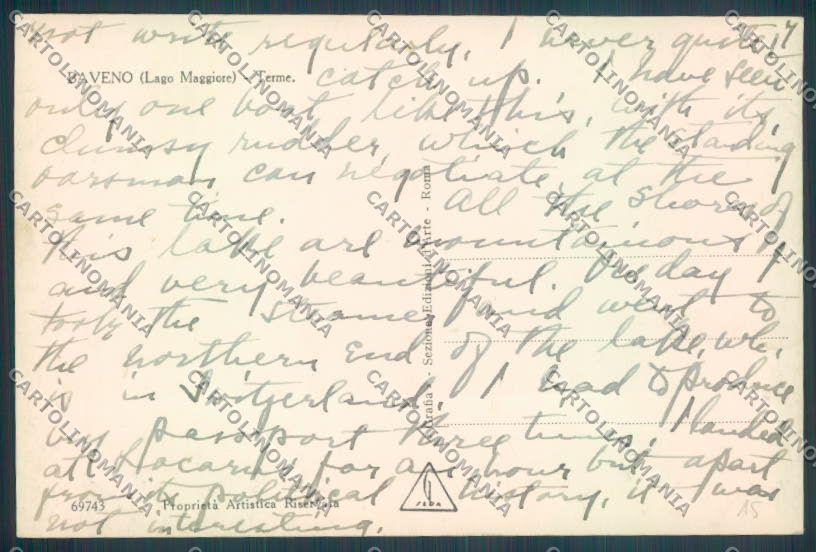 not write regularly, I never quite
BAVENO (Lago Maggiore) - Terme.
catch up. I have seen
only one boat like this, with its
clumsy rudder which the standing
oarsman can negotiate at the
same time. All the shores of
this lake are mountainous
and very beautiful. One day I
took the steamer and went to
the northern end of the lake, wh.
is in Switzerland. I had to produce
my passport three times. I landed
at Locarno for an hour but apart
from its political history, it was
not interesting.
Grafia - Sezione Edizioni d'Arte - Roma
69743
Proprietà Artistica Riservata
15
CARTOLINOMANIA